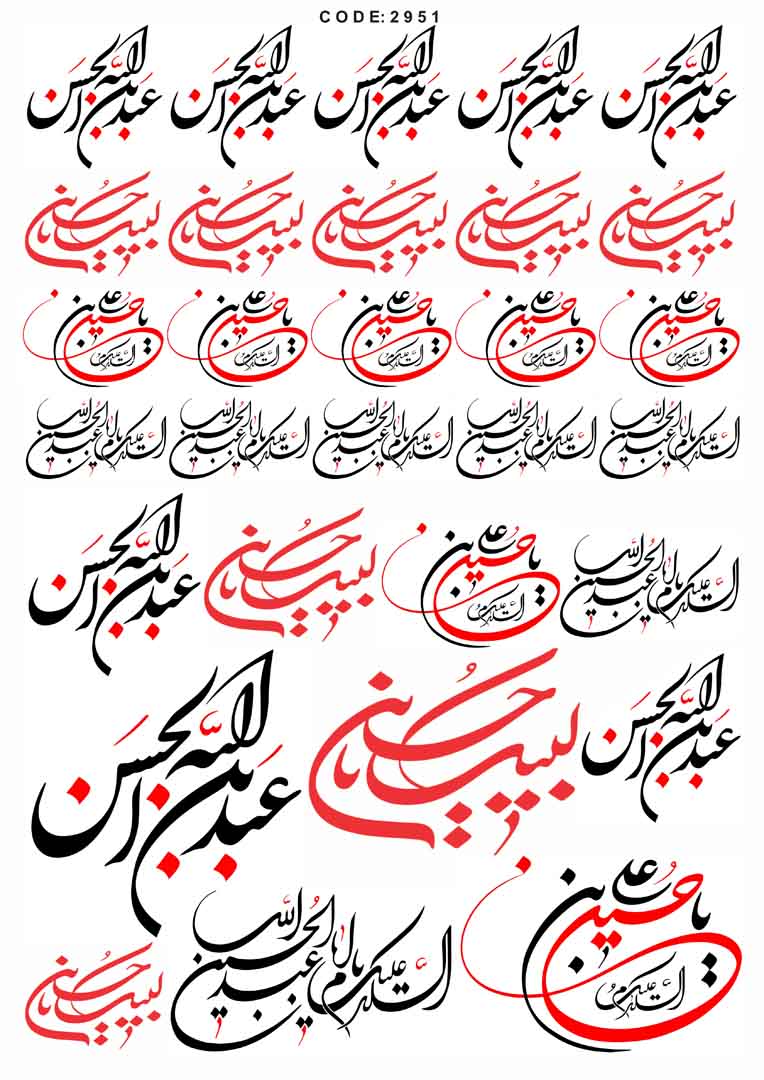 CODE:2951
عبدالله بن الحسن عبدالله بن الحسن عبدالله بن الحسن عبدالله بن الحسن عبدالله بن الحسن
لبیک یا حسین لبیک یا حسین لبیک یا حسین لبیک یا حسین لبیک یا حسین
یا حسین بن علی یا حسین بن علی یا حسین بن علی یا حسین بن علی یا حسین بن علی
السلام علیک السلام علیک السلام علیک السلام علیک السلام علیک
السلام علیک یا اباعبدالله الحسین السلام علیک یا اباعبدالله الحسین السلام علیک یا اباعبدالله الحسین السلام علیک یا اباعبدالله الحسین السلام علیک یا اباعبدالله الحسین
السلام علیک یا اباعبدالله الحسین یا حسین بن علی السلام علیک لبیک یا حسین عبدالله بن الحسن
عبدالله بن الحسن لبیک یا حسین عبدالله بن الحسن
یا حسین بن علی السلام علیک السلام علیک یا اباعبدالله الحسین لبیک یا حسین